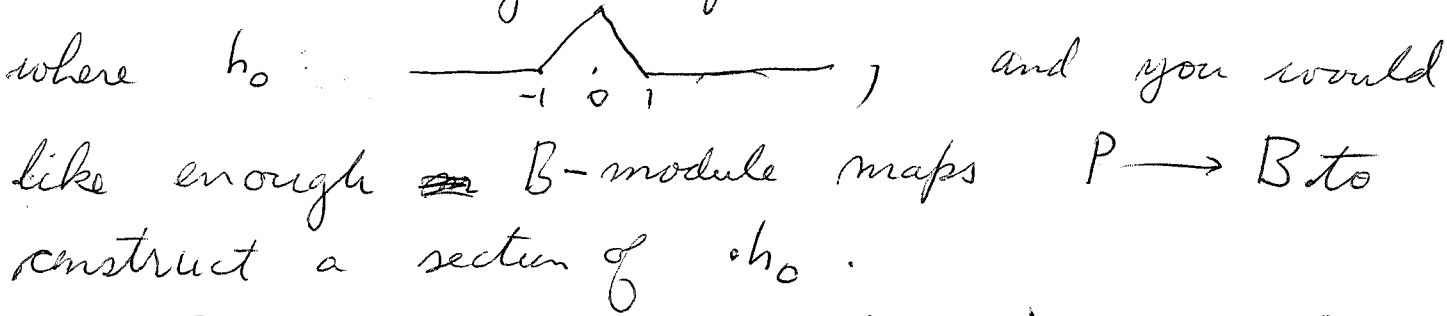 where h₀ : , and you would
-1 0 1
like enough B-module maps P ⟶ B to
construct a section of ·h₀ .